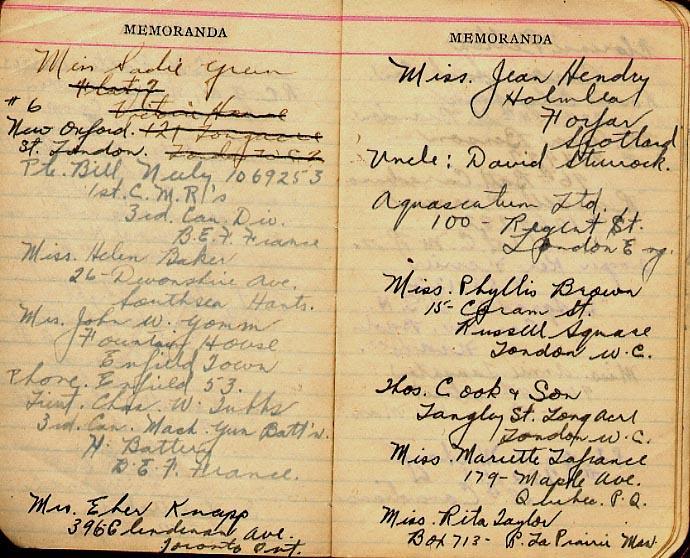 MEMORANDA
Miss Sadie Green
# 6
New Oxford. 121
St. London.
Pte. Bill, Neily 1069253
1st. C. M. R's
3rd. Can. Div.
B.E.F. France
Miss. Helen Baker
26- Devonshire Ave.
Southsea Hants.
Mrs. John W. Yomm
Fountain House
Enfield Town
Phone. Enfield 53.
Lieut. Chas. W. Tubbs
3rd. Can. Mach. Gun Batt'n.
H. Battery
B.E.F. France.
Mrs. Eber Knapp
396 Glendenan Ave.
Toronto Ont.
MEMORANDA
Miss. Jean Hendry
Holmlea
Forfar
Scotland
Uncle: David Sturrock.
Aquascutum Ltd.
100- Regent St.
London Eng.
Miss. Phyllis Brown
15- Coram St.
Russell Square
London W.C.
Thos. Cook & Son
Langley St. Long Acre
London W.C.
Miss. Mariette Lafrance
179- Maple Ave.
Quebec. P.Q.
Miss. Rita Taylor
Box 713- P. La Prairie Man.